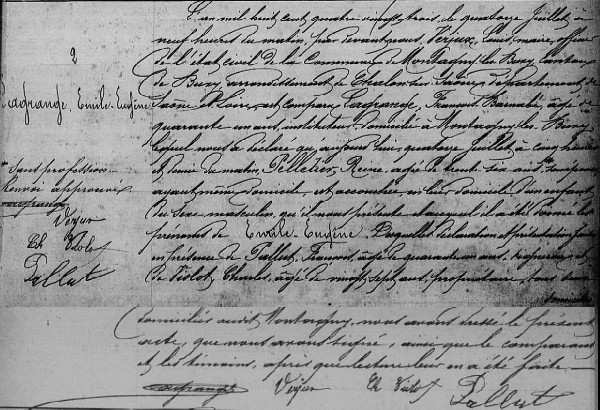 L'an mil huit cent quatre vingt trois, le quatorze Juillet à
neuf heures du matin, par devant nous, Verjux, Louis, maire, officier
de l'état civil de la Commune de Montagny-lès-Buxy, canton
de Buxy, arrondissement de Chalon-sur-Saône, département de
Saône et Loire, est comparu Lagrange, François Barnabé, âgé de
quarante un ans, instituteur domicilié à Montagny-lès-Buxy
lequel nous a déclaré que, aujourd'hui, quatorze Juillet à cinq heures
et demie du matin, Pelletier, Reine, âgée de trente six ans, son épouse
ayant même domicile est accouchée en leur domicile d'un enfant
du sexe masculin, qu'il nous présente et auquel il a été donné les
prénoms de Emile-Eugène. Lesquelles déclaration et présentation faites
en présence de Pallut, François, âgé de quarante un ans, et
de Violot Charles, âgé de vingt sept ans, propriétaire, tous deux
domiciliés
2
Lagrange, Emile-Eugène
* sans profession
Renvoi approuvé
Lagrange
Verjux
Ch Violot
Pallut
domiciliés audit Montagny, nous avons dressé le présent
acte, que nous avons signé, ainsi que le comparant
et les témoins, après que lecture leur en a été faite.
Lagrange Verjux Ch Violot Pallut